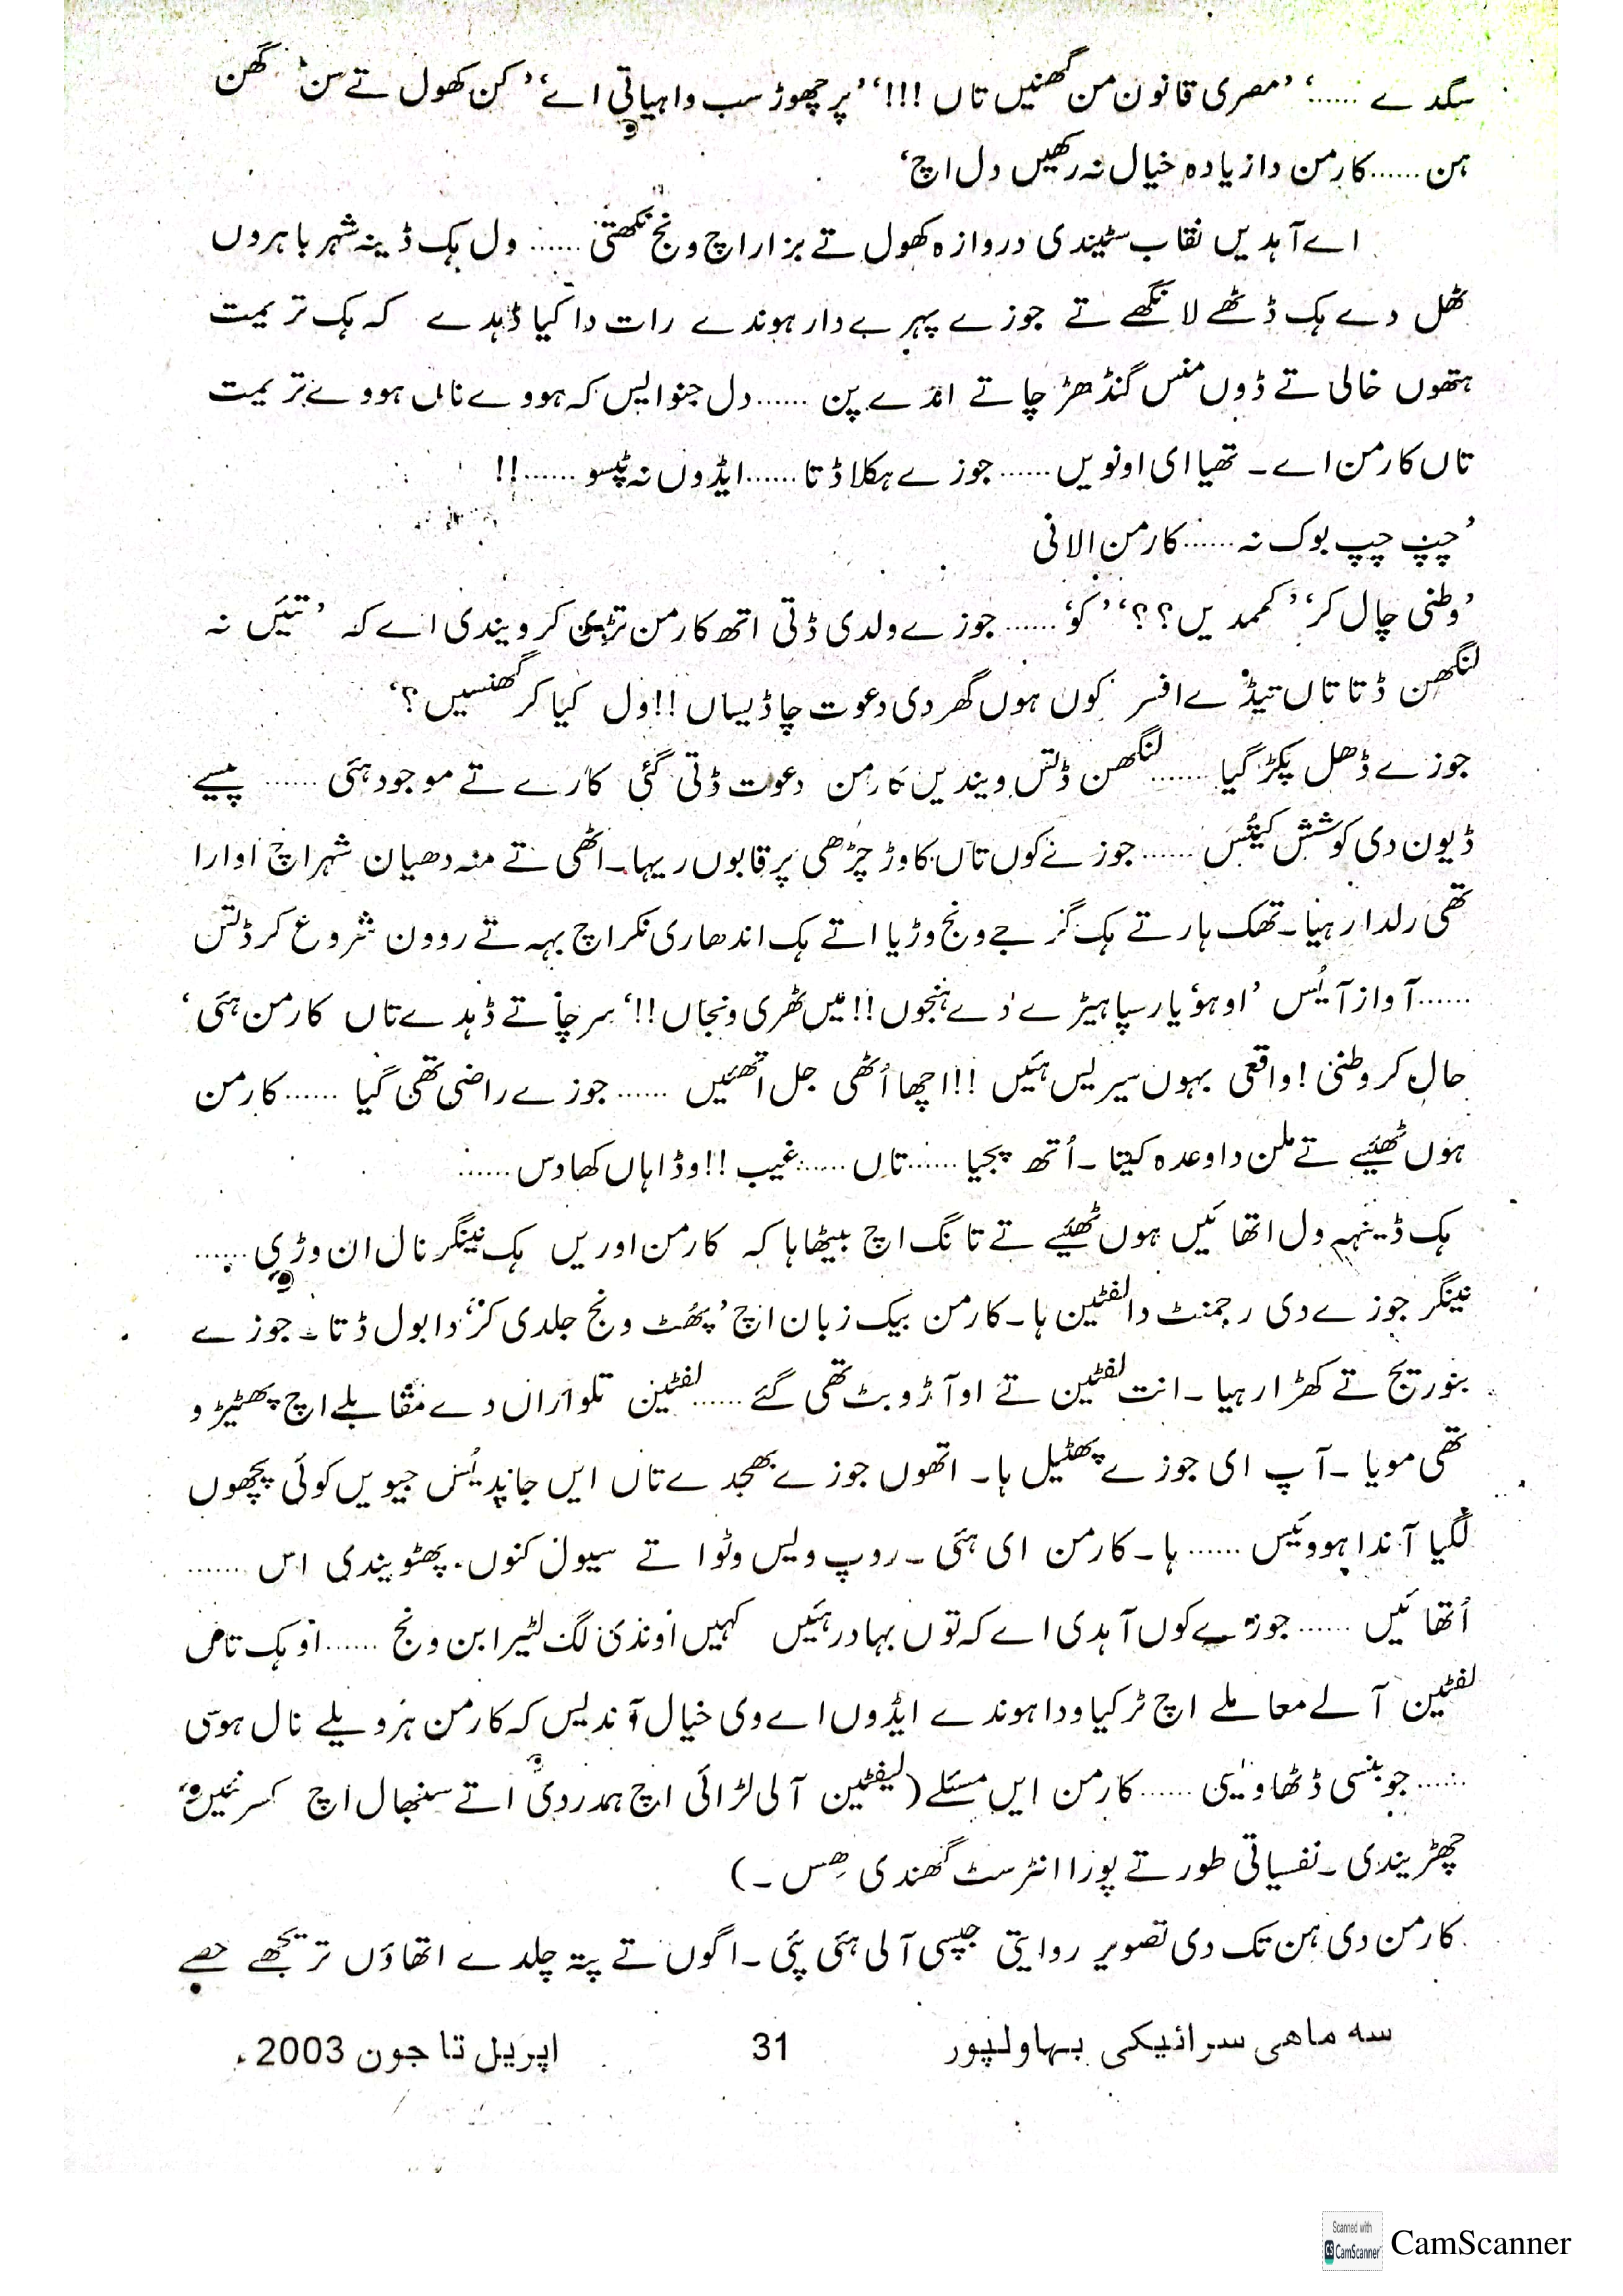 سگدے ......‘ ’مصری قانون من گھنیں تاں !!!‘ ’پر چھوڑ سب واہیاتی اے‘ ’کن کھول تے سن گھن
ہن ......کارمن دا زیادہ خیال نہ رکھیں دل اچ‘
اے آہدیں نقاب سٹیندی دروازہ کھول تے بزار اچ ونج نکھتی ...... ول ہک ڈینہ شہر باہروں
ٹھل دے ہک ڈٹھے لانگھے تے جوزے پہرے دار ہوندے رات دا کیا ڈہدے کہ ہک تریمت
ہتھوں خالی تے ڈوں منس گنڈھڑ چاتے اندے پن ......دل جنوایس کہ ہووے ناں ہووے تریمت
تاں کارمن اے ۔ تھیا ای اونویں ...... جوزے ہکلا ڈتا ......ایڈوں نہ ٹپسو ......!!
’چپ چپ بوک نہ ......کارمن الانی
’وطنی چال کر‘ ’کمدیں ؟؟‘ ’کو‘ ...... جوزے ولدی ڈتی اتھ کارمن تڑی کر ویندی اے کہ ’تئیں نہ
لنگھن ڈتا تاں تیڈے افسر کوں ہوں گھر دی دعوت چا ڈیساں !! ول کیا کر گھنسیں ؟‘
جوزے ڈھل پکڑ گیا ......لنگھن ڈتس ویندیں کارمن دعوت ڈتی گئی کارے تے موجود ہئی ...... پیسے
ڈیون دی کوشش کیتس ...... جوزے کوں تاں کاوڑ چڑھی پر قابوں ریہا۔ اٹھی تے منہ دھیان شہر اچ اوارا
تھی رلدا رہیا۔ تھک ہار تے ہک گرجے ونج وڑیا اتے ہک اندھاری نکر اچ بہہ تے روون شروع کر ڈتس
......آواز آیُس ’اوہو یار سپاہیڑے دے ہنجوں !! میں ٹھری ونجاں !!‘ سر چاتے ڈہدے تاں کارمن ہئی‘
حال کر وطنی ! واقعی بہوں سیریس ہئیں !! اچھا اُٹھی جل اتھئیں ...... جوزے راضی تھی گیا ...... کارمن
ہوں ٹھیئے تے ملن دا وعدہ کیتا ۔ اُتھ پجیا ......تاں ......غیب !! وڈا ہاں کھادس ......
ہک ڈینہہ ول اتھائیں ہوں ٹھیئے تے تانگ اچ بیٹھا ہا کہ کارمن اوریں ہک نینگر نال ان وڑی ......
نینگر جوزے دی رجمنٹ دا لفٹین ہا۔ کارمن بیک زبان اچ ’پھُٹ ونج جلدی کر‘ دا بول ڈتا۔ جوزے
بنور یج تے کھڑا رہیا ۔ انت لفٹین تے او آڈو بٹ تھی گئے ......لفٹین تلواراں دے مقابلے اچ پھٹیڑ و
تھی مویا ۔ آپ ای جوزے پھٹیل ہا۔ اتھوں جوزے بھجدے تاں ایں جاپدیُس جیویں کوئی پچھوں
لگیا آندا ہوویس ...... ہا۔ کارمن ای ہئی ۔ روپ ولیس وٹوا تے سیول کنوں پھٹویندی اس ......
اُتھائیں ...... جوزے کوں آہدی اے کہ توں بہادر ہئیں کہیں اوندی لگ لٹیرا بن ونج ...... او ہک تاں
لفٹین آلے معاملے اچ ٹر کیا ودا ہوندے ایڈوں اے وی خیال آندیس کہ کارمن ہر ویلے نال ہوسی
...... جو بنسی ڈٹھا ویسی ...... کارمن ایں مسئلے (لیفٹین آلی لڑائی اچ ہمدردی اتے سنبھال اچ کسر نئیں
چھڑیندی ۔ نفسیاتی طور تے پورا انٹرسٹ گھندی ہِس ۔)
کارمن دی ہن تک دی تصویر روایتی جپسی آلی ہئی پئی ۔ اگوں تے پتہ چلدے اتھاؤں تریجھے حصے
سه ماهی سرائیکی بہاولپور 31 اپریل تا جون 2003ء
Scanned with CamScanner CamScanner